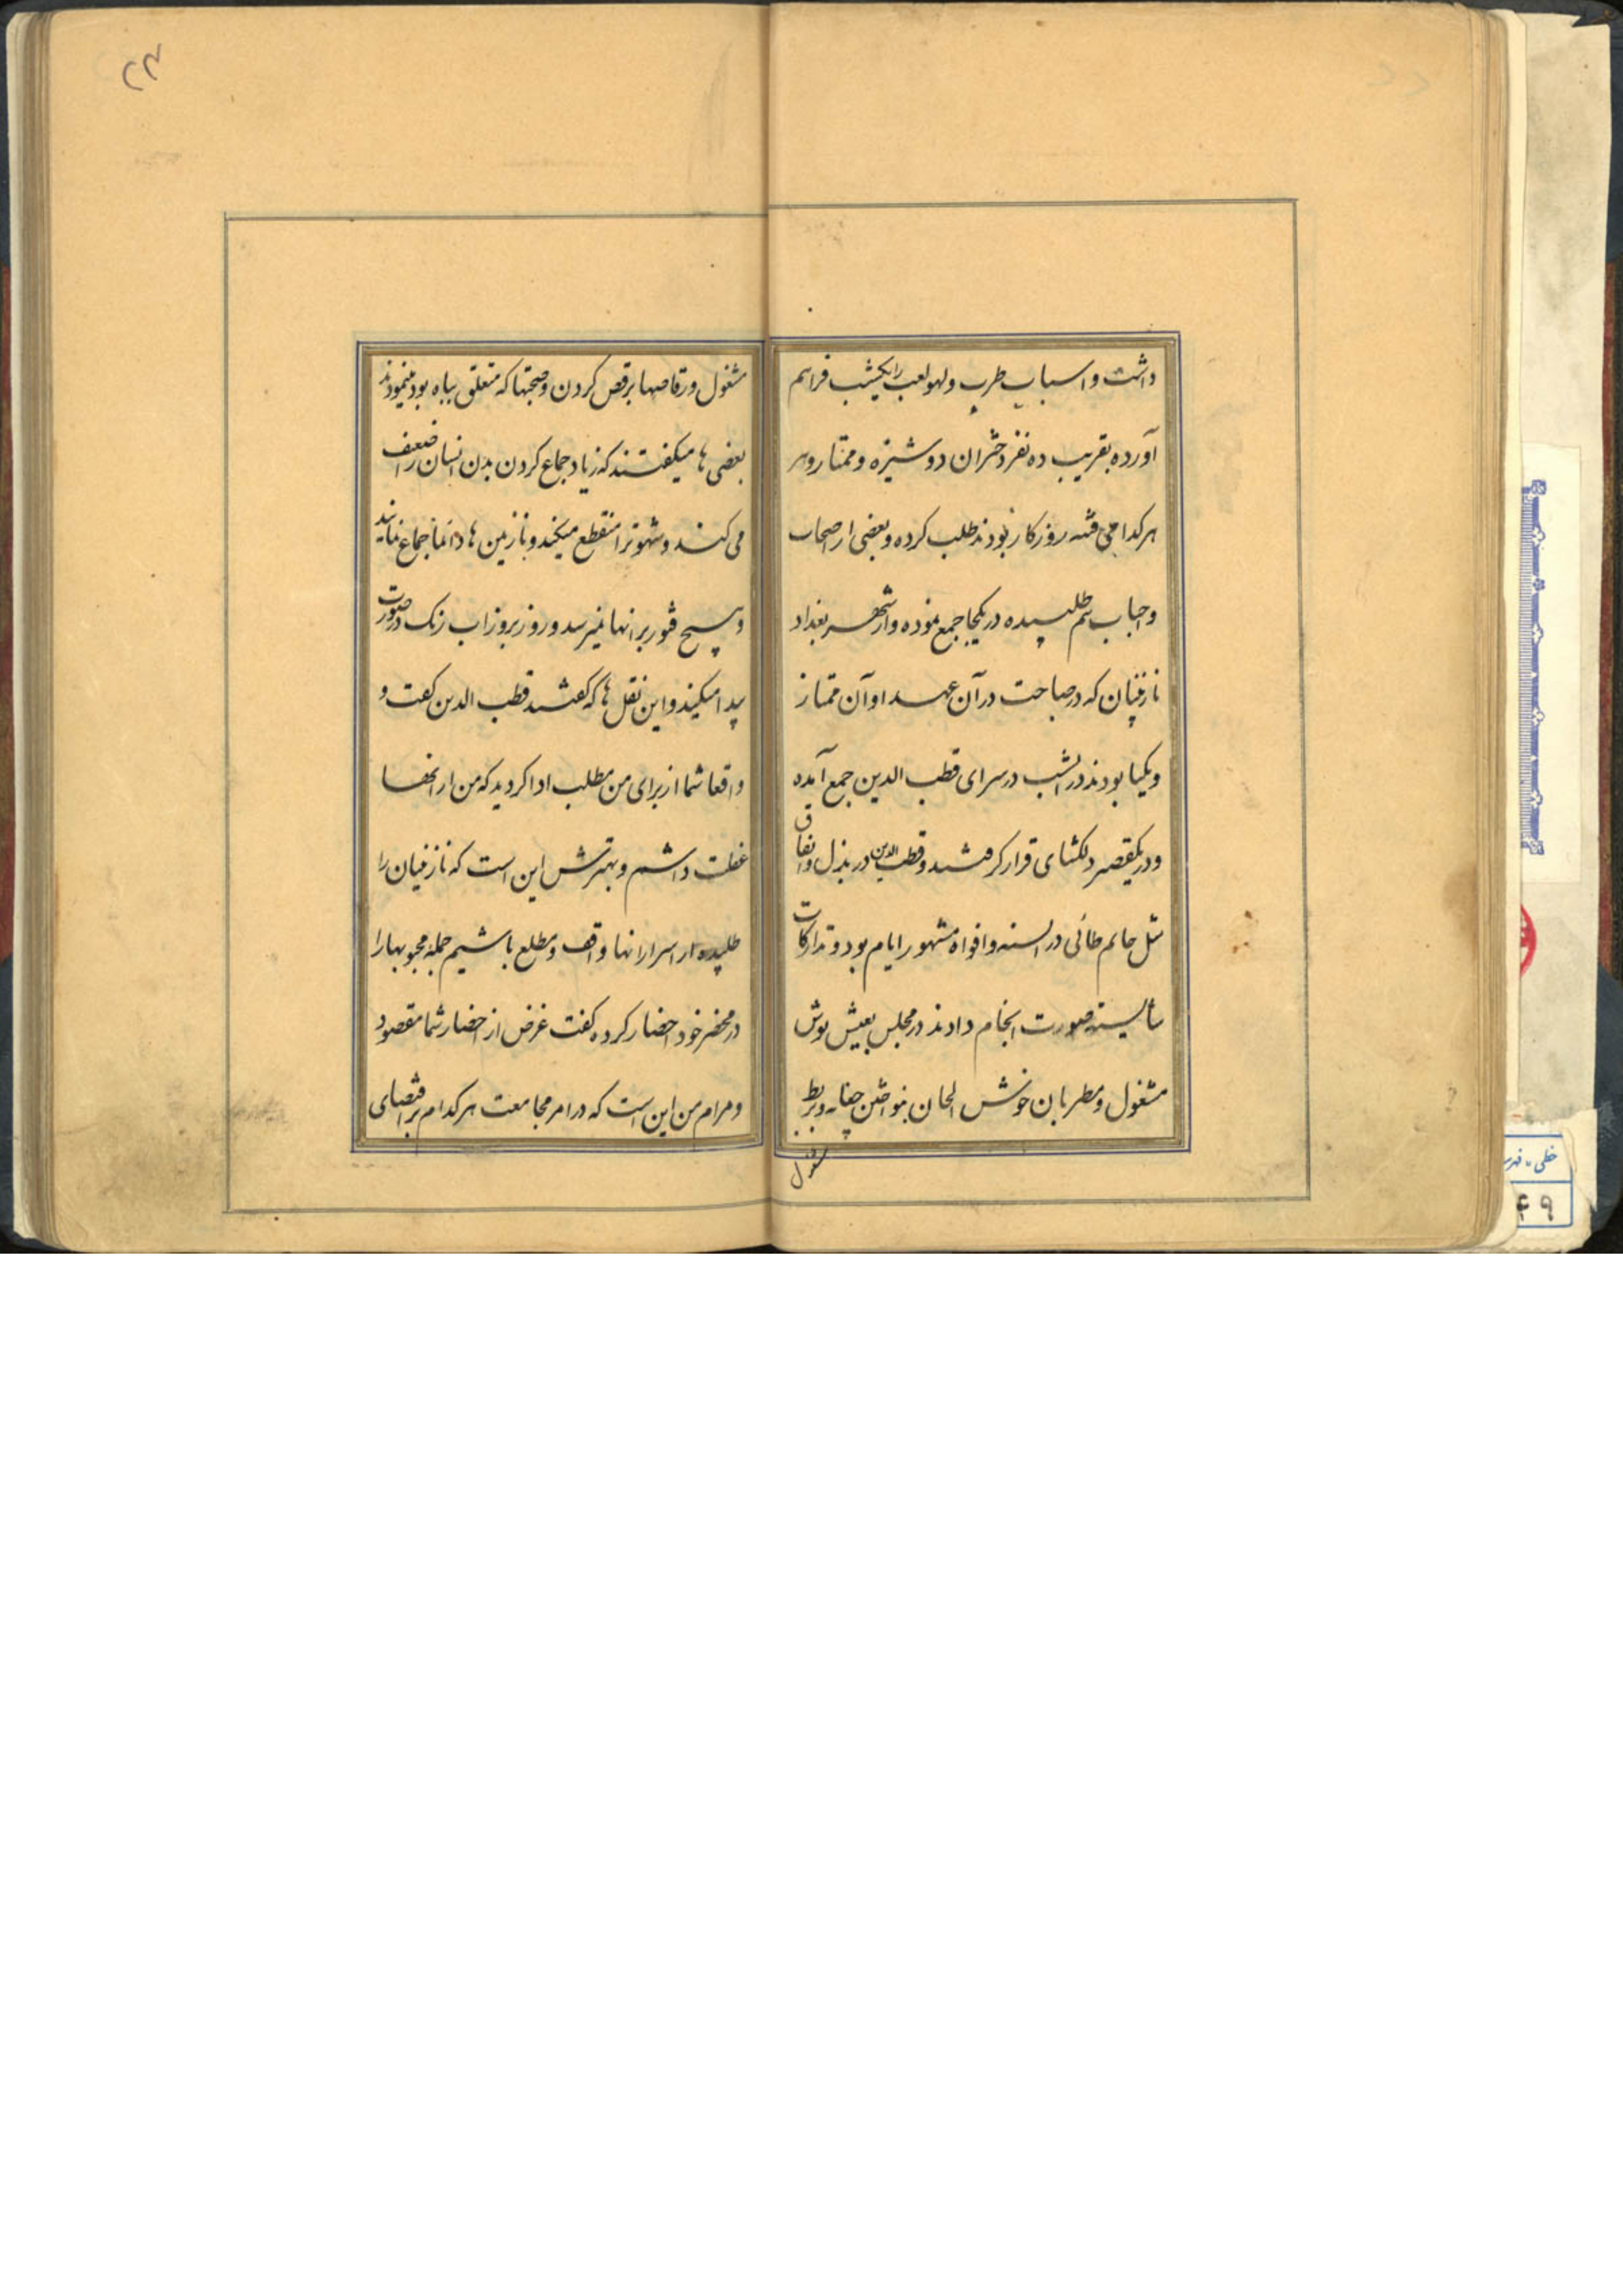 داشت و اسباب طرب و لهو لعب را یکشب فراهم
آورده بقریب ده نفر دختران دوشیزه و ممتار وهر
هر کدامی فتنه روزکار بودند طلب کرده و بعضی از اصحاب
واحباب هم طلبیده در یکجا جمع نموده و از شهر بغداد
نازنینان که در صباحت در آن عهد و اوان ممتاز
و یکتا بودند در انشب در سرای قطب الدین جمع آمده
و در یکقصر دلکشای قرار کرفتند و قطب الدین در بذل و انفاق
مثل حاتم طائی در السنه و افواه مشهور ایام بود و تدارکات
شایسته صورت انجام دادند در مجلس بعیش نوش
مشغول و مطربان خوش الحان بنواختن چغانه و بربط
مشغول
۲۳
مشغول ورقاصها برقص کردن و صحبتها که متعلق بباه بود مینمودند
بعضی ها میکفتند که زیاد جماع کردن بدن انسان را ضعیف
می کند و شهوترا منقطع میکند و نازنین ها دائما جماع نمایند
و هیچ فتور بر انها نمیرسد و روز بروز اب رنک در صورت
پیدا میکنند و این نقل ها که کفتند قطب الدین کفت و
واقعا شما از برای من مطلب ادا کردید که من از انها
غفلت داشتم و بهترش این است که نازنینان را
طلبیده از اسرار انها واقف و مطلع باشیم جمله محبوبها را
در محضر خود احضار کرده کفت غرض از احضار شما مقصود
و مرام من این است که در امر مجامعت هر کدام بر اقتضای
خطی
۴۹